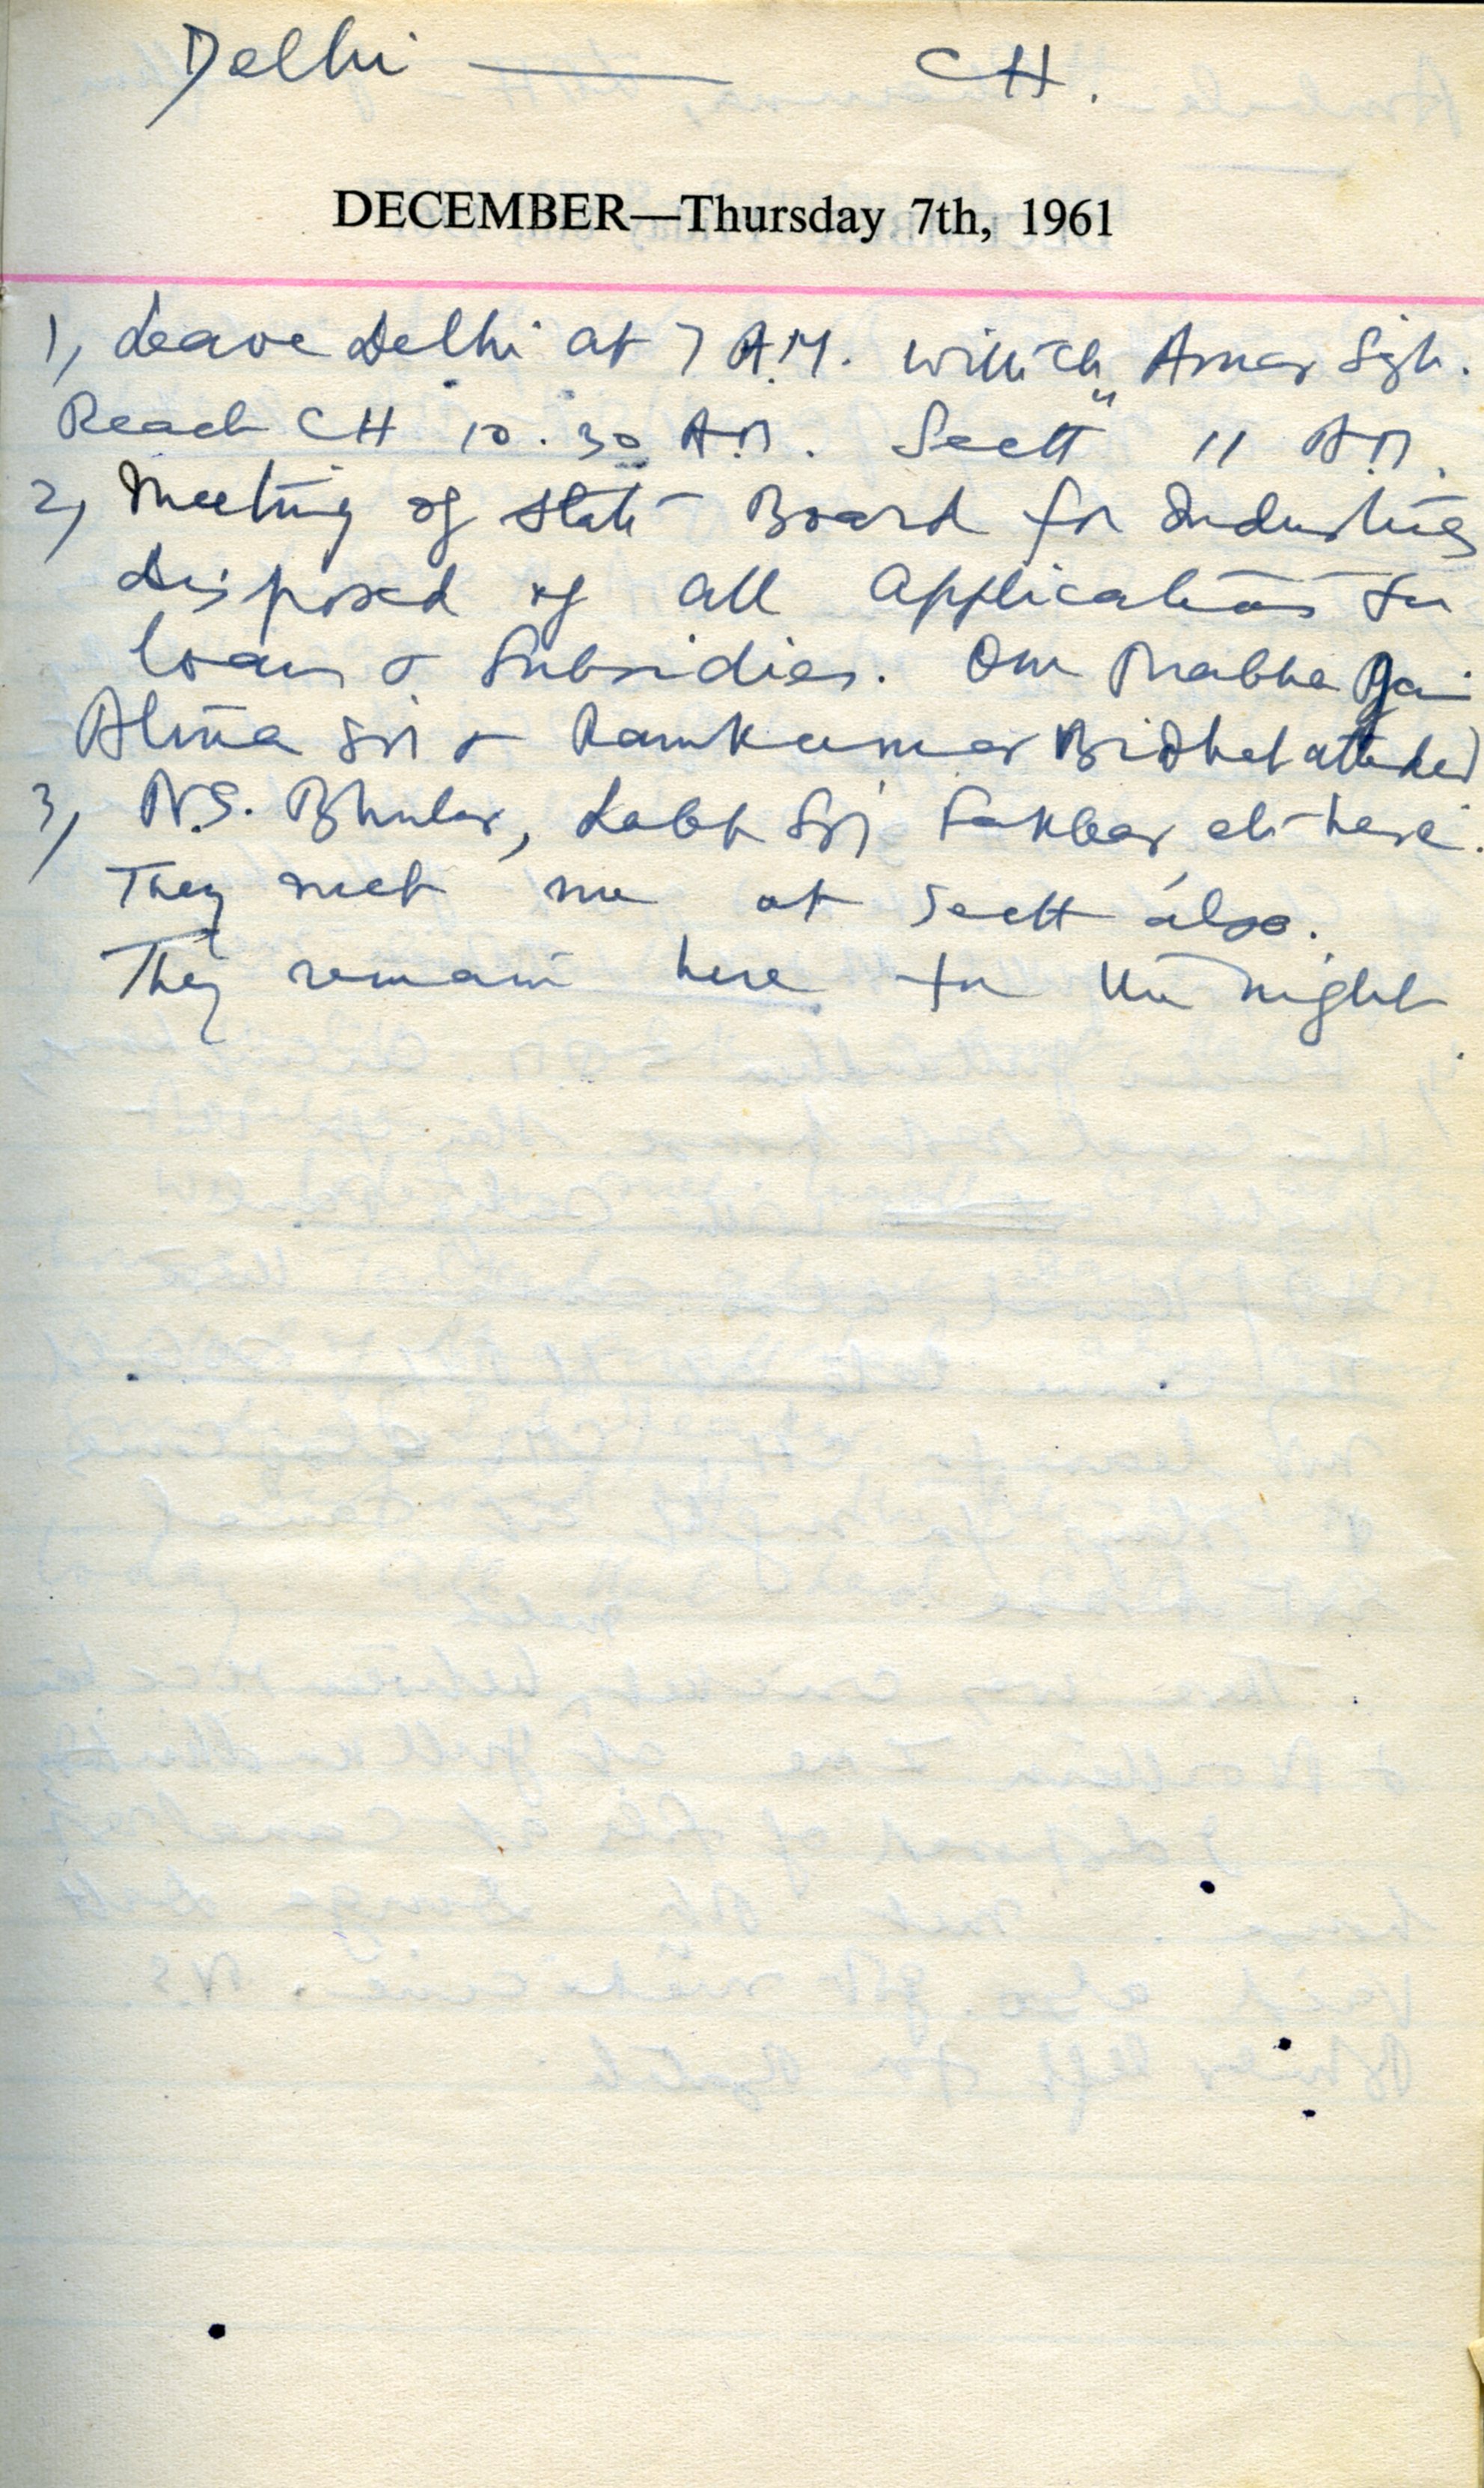 Delhi — CH.
DECEMBER—Thursday 7th, 1961
1, Leave Delhi at 7 A.M. with Ch. Amar Sgh.
Reach CH 10.30 A.M. Sectt 11 A.M.
2, Meeting of State Board for Industries
disposed of all applications for
loans & Subsidies. Om Prabha Jain
Sri & Ramkumar attended
3, N.S. Bhuler, Labh Sri here.
They met me at Sectt also.
They remain here for the night